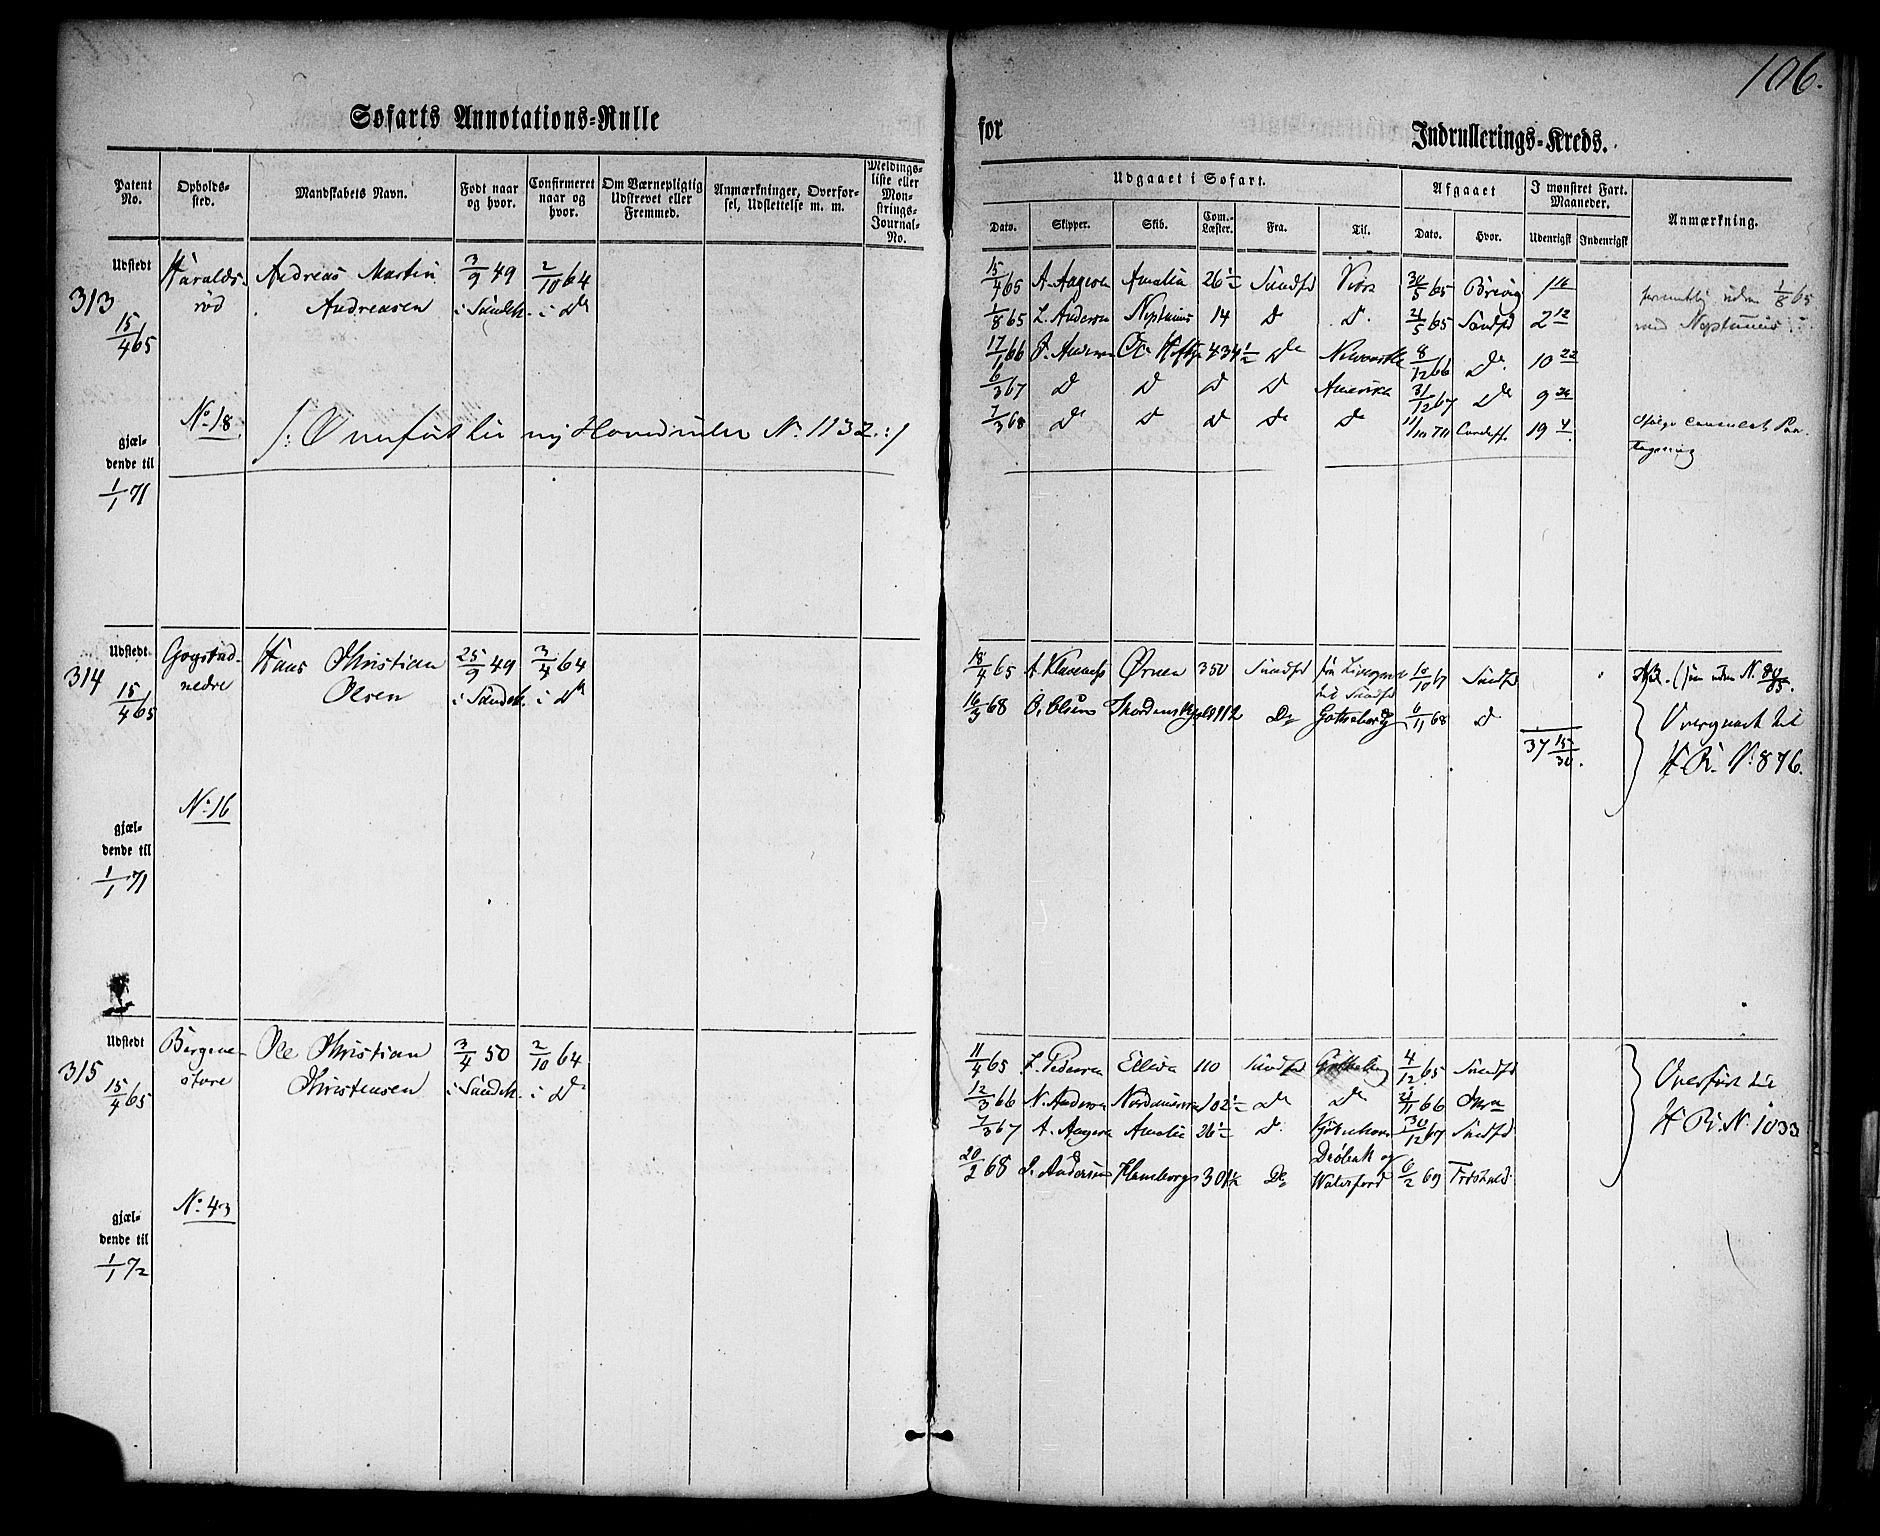 106.
Søfarts Annotations=Rulle for Indrullerings=Kreds.
Patent No.
Opholds-sted.
Mandskabets Navn.
Født naar og hvor.
Confirmeret naar og hvor.
Om Værnepligtig Udskrevet eller Fremmed.
Anmærkninger, Overførsel, Udslettelse m. m.
Meldings-liste eller Mønstrings-Journal-No.
Udgaaet i Søfart.
Dato.
Skipper.
Skib.
Com.-Læster.
Fra.
Til.
Afgaaet
Dato.
Hvor.
I mønstret Fart. Maaneder.
Udenrigsk
Indenrigsk
Anmærkning.
313
Udstedt
15/4 65
Haralds-
rød
Andreas Martin
Andreasen
3/9 49
i Sandeh.
2/10 64
i Do
No 18
/: Overført til ny Hovedrulle No 1132 :/
gjæl-
dende til
1/1 71
15/4 65 A. Aagesen Amalia 26 1/2 Sandfd 30/5 65 Brevig 1 16
1/8 65 L. Andersen Neptunus 14 Do Do 21/5 65 Sandfd 2 12
17/1 66 434 1/2 Do 8/12 66 Do 10 22
6/3 67 Do Do Do Do Amerika 31/12 67 Do 9 24
7/3 68 Do Do Do Do Do 70 Cardiff 19 4
uden 1/8 65
med Neptunus
314
Udstedt
15/4 65
Gogstad
nedre
Hans Christian
Olsen
25/9 49
i Sandeh.
3/4 64
i Do
No 16
gjæl-
dende til
1/1 71
18/4 65 A. Ørnen 350 Sandfd
til Sandfd 10/10 67 Sandfd
16/3 68 O. Olsen Thordenskjold 112 Do Gothaborg 6/11 68 Do
37 15/30.
Overgaaet til
H. R. No 876.
315
Udstedt
15/4 65
Bergene
store
Ole Christian
Christensen
3/4 50
i Sandeh.
2/10 64
i Do
No 43
gjæl-
dende til
1/1 72
11/4 65 L. Pedersen Ellida 110 Sandfd Gothaborg 4/12 65 Sandfd
12/3 66 N. Andersen 102 1/2 Do Do 21/11 66
7/3 67 A. Aagesen Amalia 26 1/2 Do Kjøbenhavn 30/12 67 Sandfd
20/2 68 Andersen Do Drøbak og
Waterford 6/2 69
Overført til
H. R. No 1033